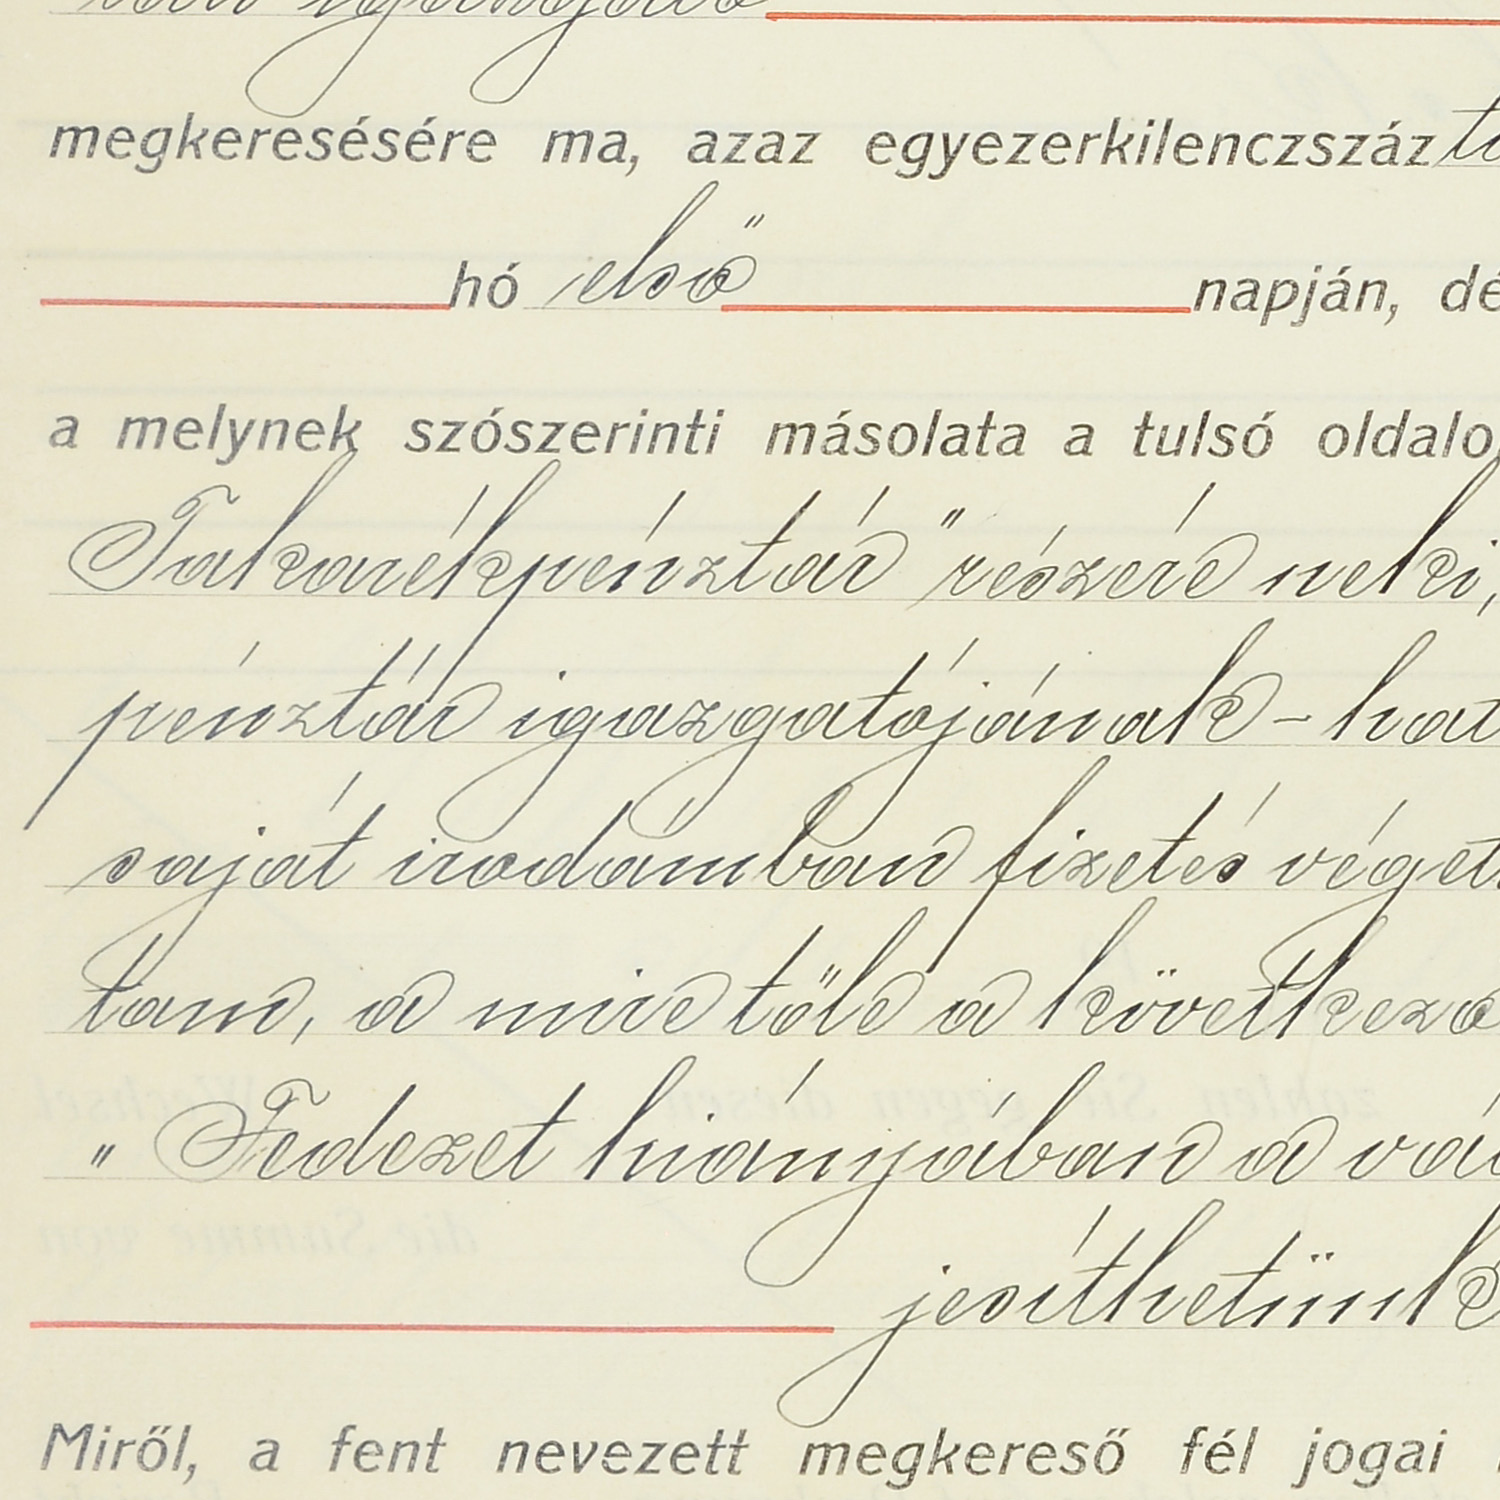 megkeresésére ma, azaz egyezerkilenczszáz
hó első napján, dé
a melynek szószerinti másolata a tulsó oldalo
Takarékpénztár" részére neki,
pénztár igazgatójának - hat
saját irodámban fizetés véget
tam, a mire tőle a következő
„Fedezet hiányában a vál
jesíthetünk
Miről, a fent nevezett megkereső fél jogai